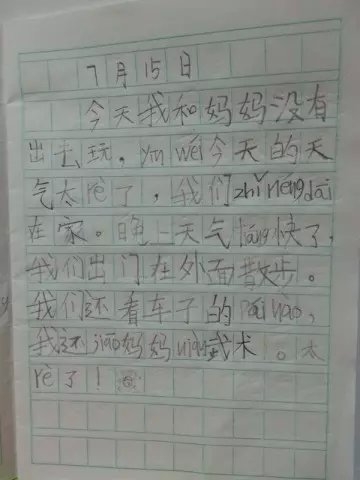 7月15日
今天我和妈妈没有
出去玩，yīn wéi今天的天
气太rè了，我们zhǐ néng dāi
在家。晚上天气 快了，
我们出门在外面散步。
我们还看车子的pái hào，
我还jiāo妈妈 武术。太
rè了！